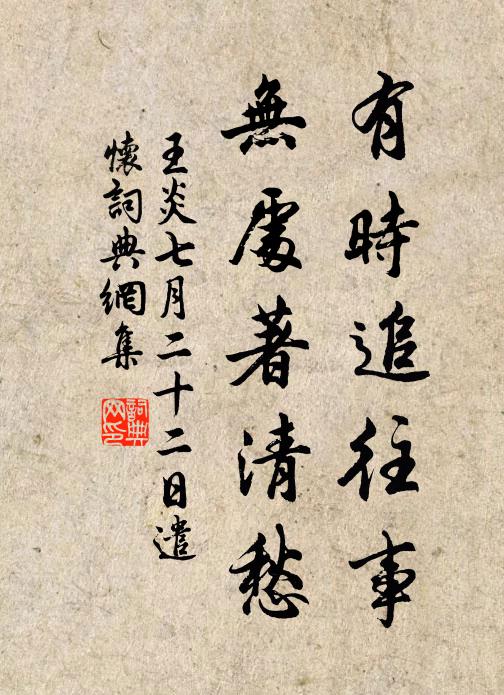 有時追往事
無處著清愁
王炎七月二十二日遣
懷詞典網集
詞典
网印